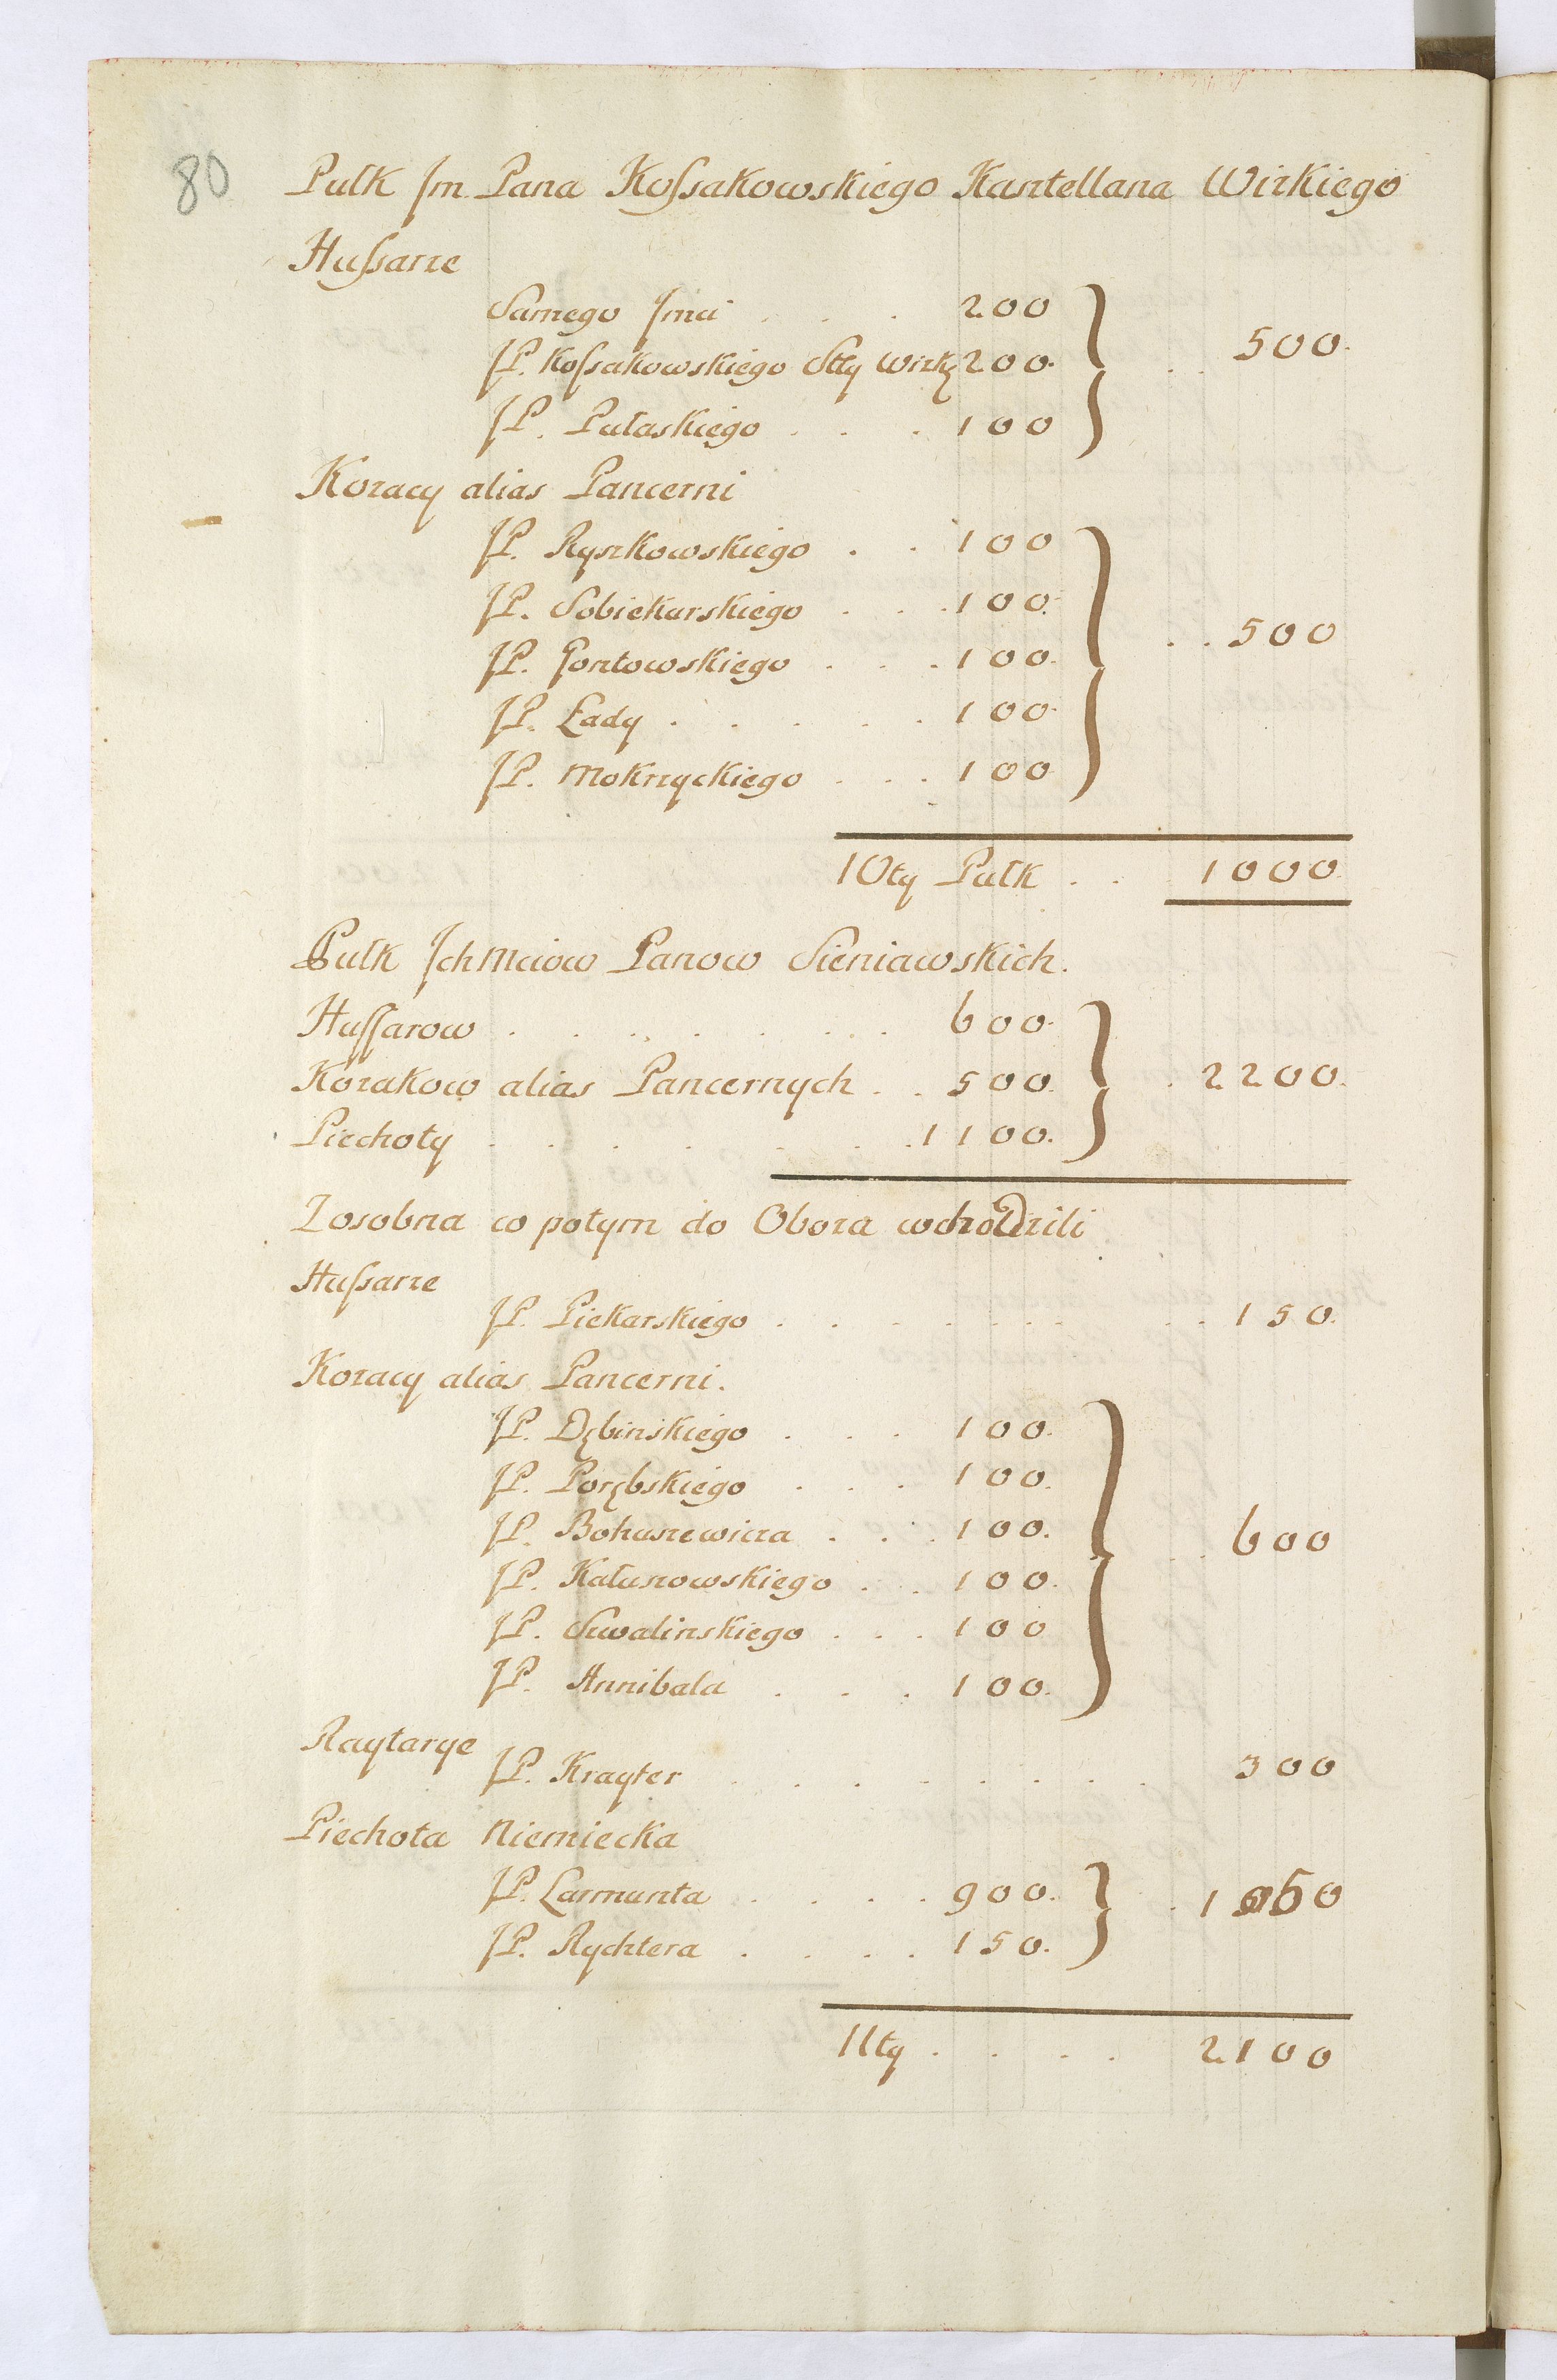 80
Pułk Jm. Pana Kossakowskiego Kasztellana Wizkiego
Hussarze
Samego Jmci . . . 200
JP. Kossakowskiego Stty Wizkg 200. . . 500.
JP. Pułaskiego . . . 100
Kozacy alias Pancerni
JP. Ryszkowskiego . . 100
JP. Sobiekurskiego . . . 100.
JP. Gontowskiego . . . 100. . . 500
JP. Łady . . . . . 100.
JP. Mokrzyckiego . . . 100
10ty Pułk . . . 1000.
Pułk Jchmciow Panow Sieniawskich.
Hussarow . . . . . . . 600.
Kozakow alias Pancernych . . 500. . 2200.
Piechoty . . . . . . . 1100.
Zosobna co potym do Oboza wchodzili
Hussarze
JP. Piekarskiego . . . . . . . . . . 150.
Kozacy alias Pancerni.
JP. Dębinskiego . . . 100.
JP. Porębskiego . . . 100.
JP. Bohuszewicza . . . 100. . . 600
JP. Kałuszowskiego . . 100.
JP. Suwalinskiego . . . 100
JP. Annibala . . . 100.
Raytarye
JP. Krayter . . . . . . . . 300
Piechota Niemiecka
JP. Larmunta . . . . 900. . 1050
JP. Rychtera . . . . 150.
11ty . . . . 2100